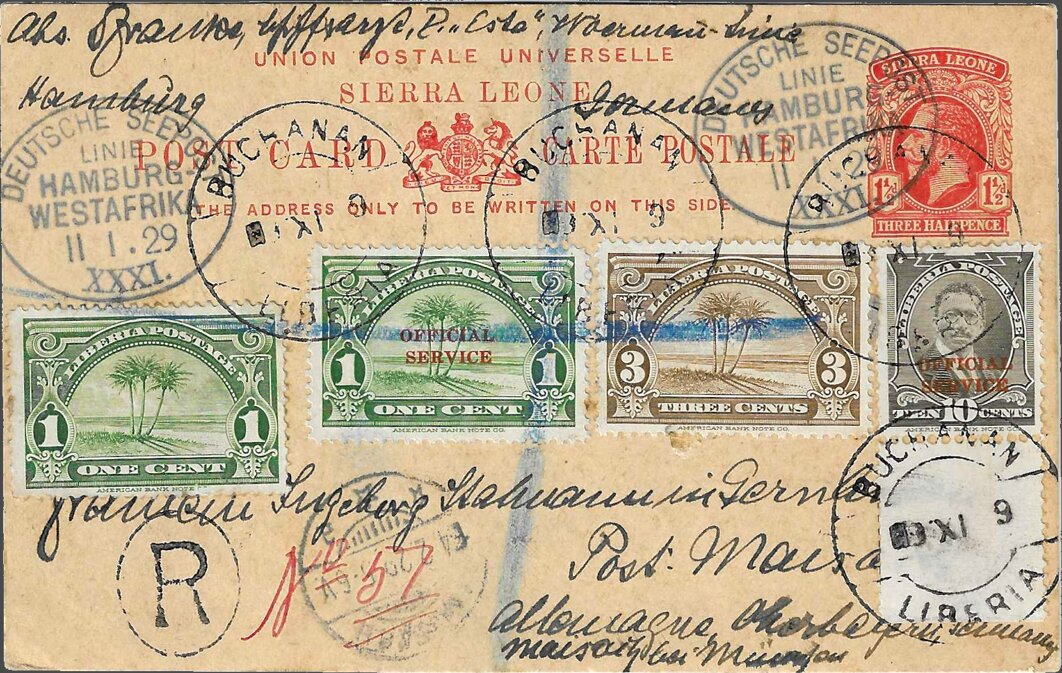 Abs. Franke, "Esta", Woermann-Linie
UNION POSTALE UNIVERSELLE
Hamburg
SIERRA LEONE
Germany
POST CARD
CARTE POSTALE
THE ADDRESS ONLY TO BE WRITTEN ON THIS SIDE.
SIERRA LEONE
1½d
1½d
THREE HALFPENCE
DEUTSCHE SEEPOST
LINIE
HAMBURG-
WESTAFRIKA
11 1.29
XXXI.
DEUTSCHE SEEPOST
LINIE
HAMBURG
WESTAFRIKA
11 1.29
XXXI.
BUCHANAN
XI 9
LIBERIA
BUCHANAN
XI 9
LIBERIA
BUCHANAN
XI 9
LIBERIA POSTAGE
1
1
ONE CENT
AMERICAN BANK NOTE
LIBERIA POSTAGE
OFFICIAL
SERVICE
1
1
ONE CENT
AMERICAN BANK NOTE CO.
LIBERIA POSTAGE
3
3
THREE CENTS
AMERICAN BANK NOTE CO.
LIBERIA POSTAGE
OFFICIAL
SERVICE
TEN 10 CENTS
BUCHANAN
XI 9
LIBERIA
Fräulein Ingeborg in
Post.
Allemagne, Oberbayern, Germany
bei München
R
No 57